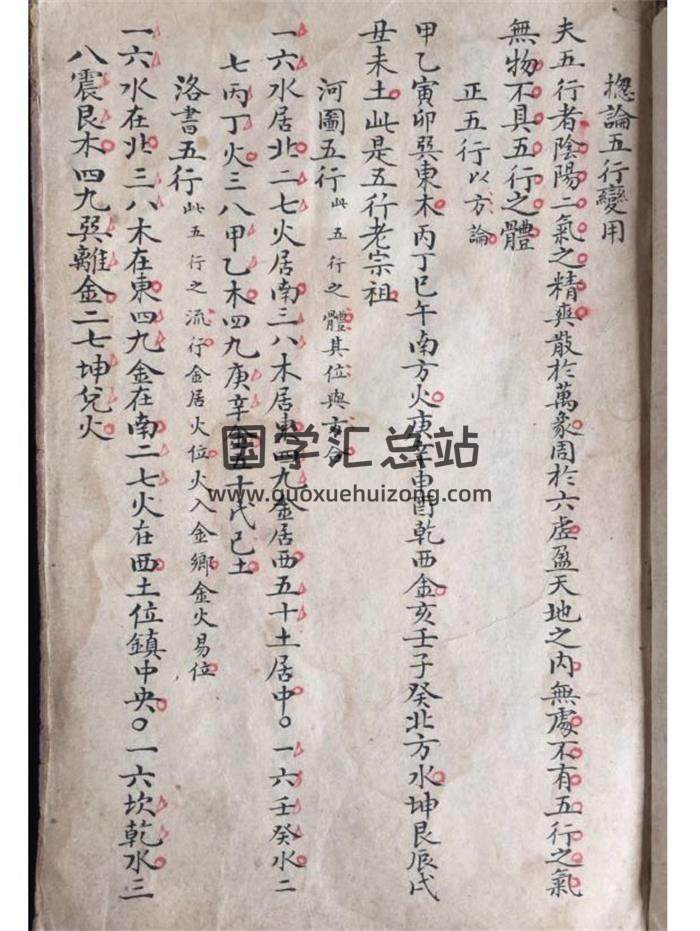 揔論五行變用
夫五行者陰陽二氣之精爽散於萬象周於六虛盈天地之內無處不有五行之氣
無物不具五行之體
正五行以方論
甲乙寅卯巽東木丙丁巳午南方火庚辛申酉乾西金亥壬子癸北方水坤艮辰戌
丑未土此是五行老宗祖
河圖五行此五行之體其位與方合
一六水居北二七火居南三八木居東四九金居西五十土居中○一六壬癸水二
七丙丁火三八甲乙木四九庚辛金五十戊己土
洛書五行此五行之流行金居火位火入金鄉金火易位
一六水在北三八木在東四九金在南二七火在西土位鎮中央○一六坎乾水三
八震艮木四九巽離金二七坤兌火
国学汇总站
www.guoxuehuizong.com